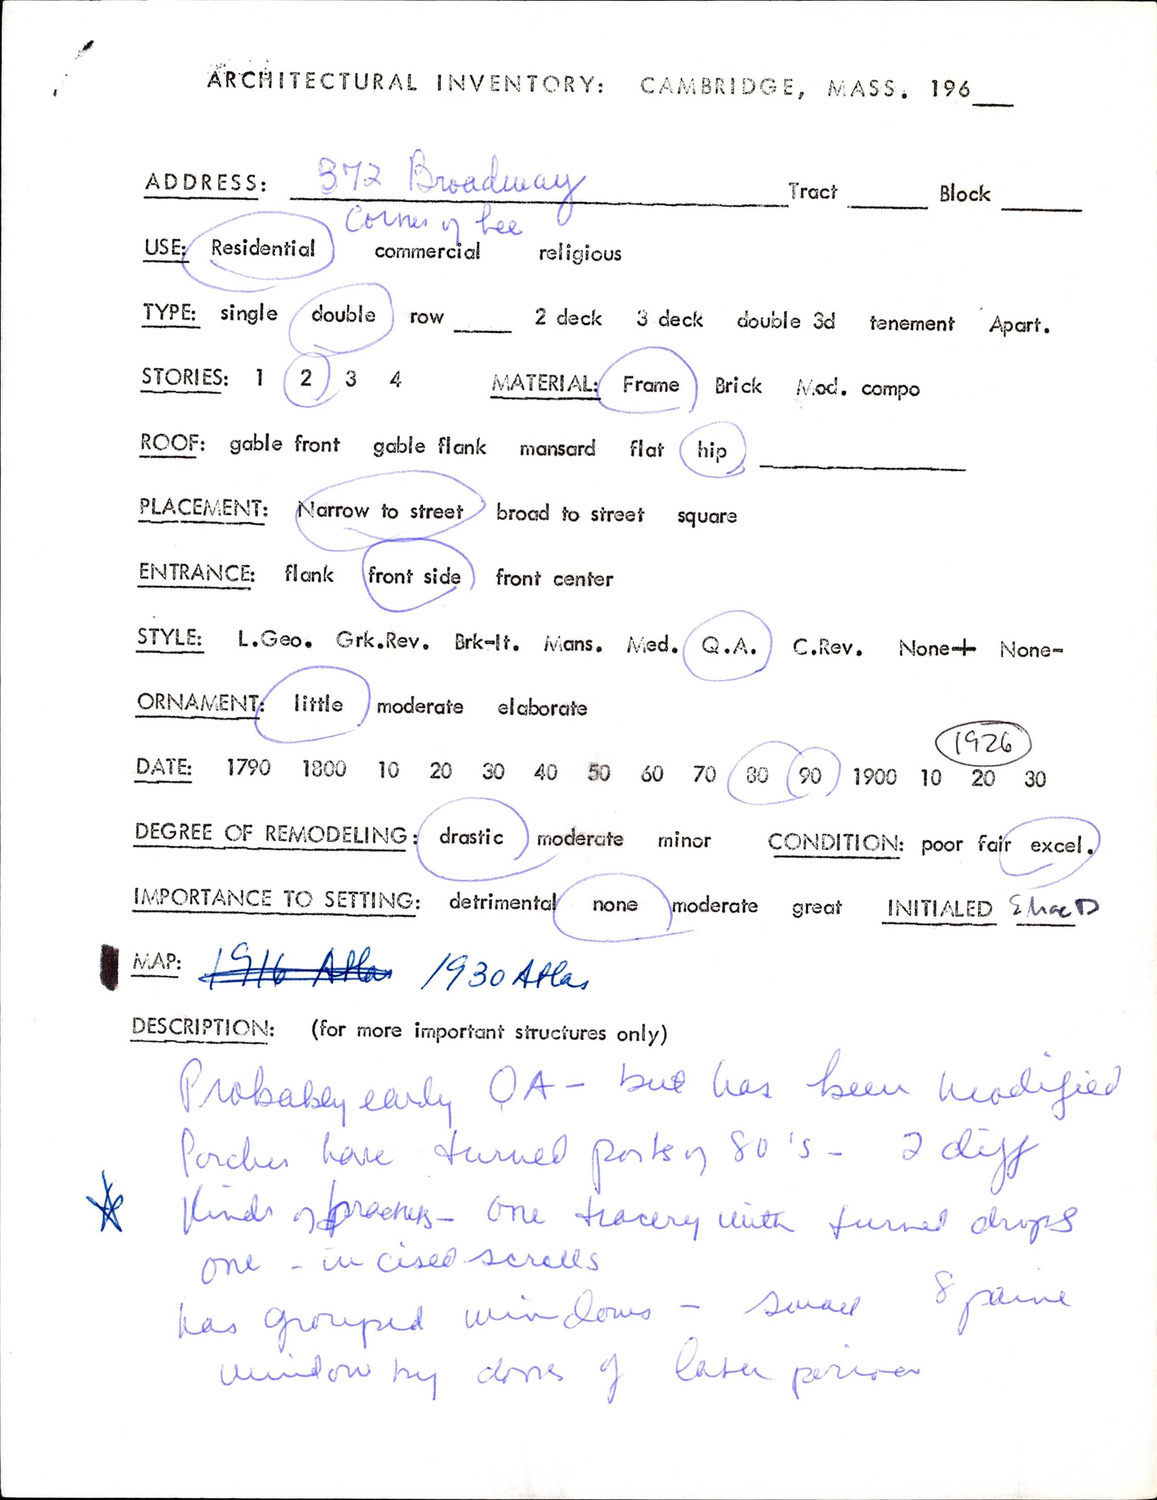 ARCHITECTURAL INVENTORY: CAMBRIDGE, MASS. 196___
ADDRESS: 372 Broadway Tract ______ Block ______
Corner of Lee
USE: Residential commercial religious
TYPE: single double row ____ 2 deck 3 deck double 3d tenement Apart.
STORIES: 1 2 3 4 MATERIAL: Frame Brick Mod. compo
ROOF: gable front gable flank mansard flat hip ______
PLACEMENT: Narrow to street broad to street square
ENTRANCE: flank front side front center
STYLE: L.Geo. Grk.Rev. Brk-It. Mans. Med. Q.A. C.Rev. None+ None-
ORNAMENT: little moderate elaborate
1926
DATE: 1790 1800 10 20 30 40 50 60 70 80 90 1900 10 20 30
DEGREE OF REMODELING: drastic moderate minor CONDITION: poor fair excel.
IMPORTANCE TO SETTING: detrimental none moderate great INITIALED
MAP: 1916 Atlas 1930 Atlas
DESCRIPTION: (for more important structures only)
Probably early QA - but has been modified
Porches have turned posts of 80's - 2 diff
Kinds of brackets - one tracery with turned drops
one - incised scrolls
has grouped windows - small 8 paine
window by doors of later period